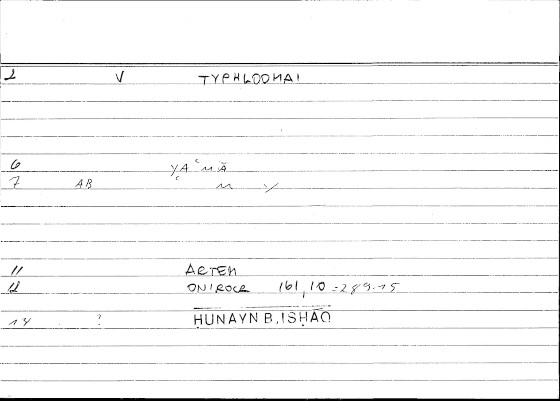 2 V TYPHLOOMAI
6 YAʿMĀ
7 AB ʿ M Y
11 ARTEM
12 ONIROCR 161,10 = 289.15
14 ? ḤUNAYN B. ISḤĀQ